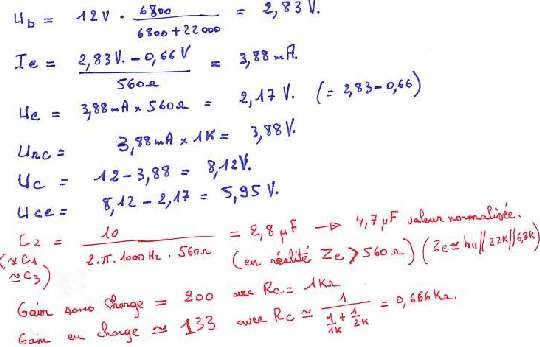 Ub = 12V · 6800 / 6800 + 22000 = 2,83 V.
Ie = 2,83V. - 0,66 V / 560Ω = 3,88 mA.
Ue = 3,88mA × 560Ω = 2,17 V. (= 2,83 - 0,66)
Urc = 3,88mA × 1K = 3,88V.
Uc = 12 - 3,88 = 8,12V.
Uce = 8,12 - 2,17 = 5,95 V.
C2 = 10 / 2.π.1000Hz . 560Ω = 2,8 µF → 4,7µF valeur normalisée.
(≈ C1
≈ C3)
(en réalité Ze > 560Ω) (Ze ≈ h11//22K//6,8K)
Gain sans charge = 200 avec Rc = 1KΩ
Gain en charge ≈ 133 avec Rc ≈ 1 / 1/1K + 1/2K = 0,666KΩ.